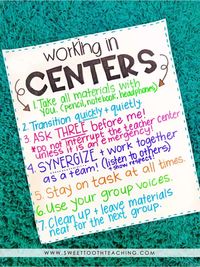 WORKING IN
CENTERS
1. Take all materials with
you. (pencil, notebook, headphones)
2. Transition quickly + quietly
3. ASK THREE before me!
*Do not interrupt the teacher center
unless it is an emergency!
4. SYNERGIZE + work together
as a team! (listen to others)
5. Stay on task at all times.
6. Use your group voices.
7. Clean up + leave materials
neat for the next group.
WWW.SWEETTOOTHTEACHING.COM